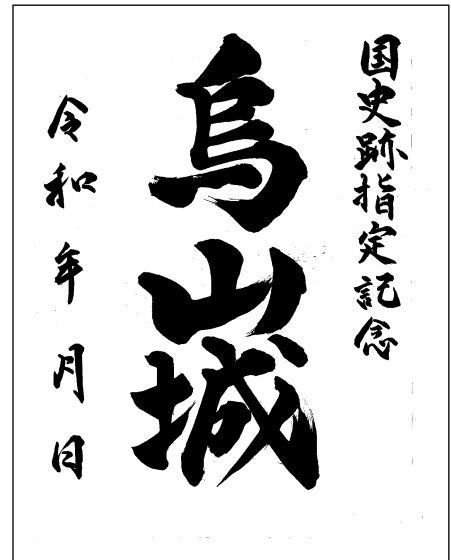 国史跡指定記念
烏山城
令和 年 月 日